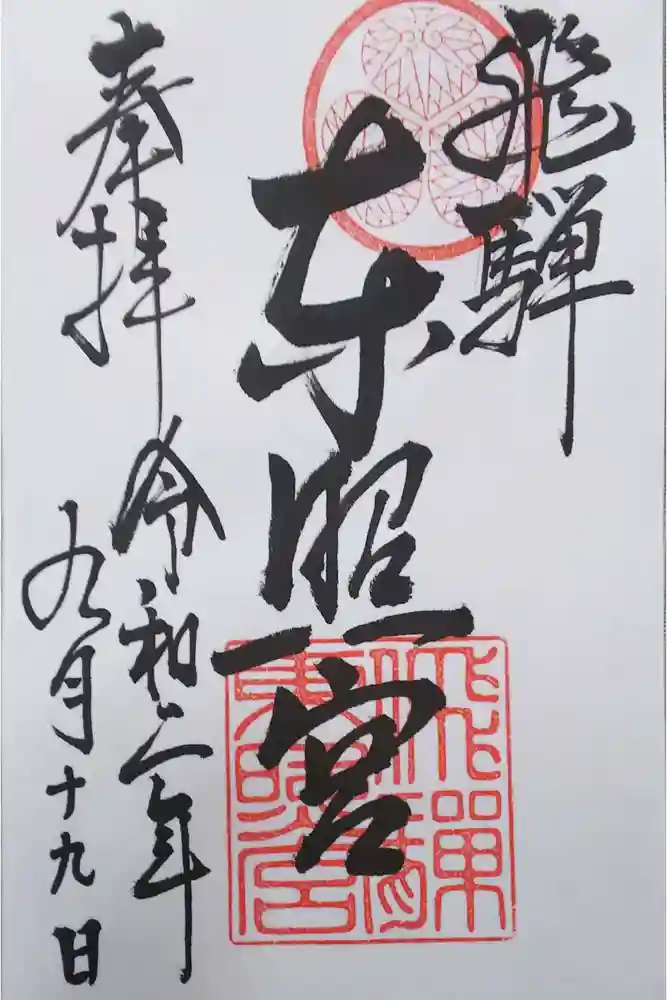 飛騨
東照宮
飛騨東照宮
奉拝
令和二年
九月十九日